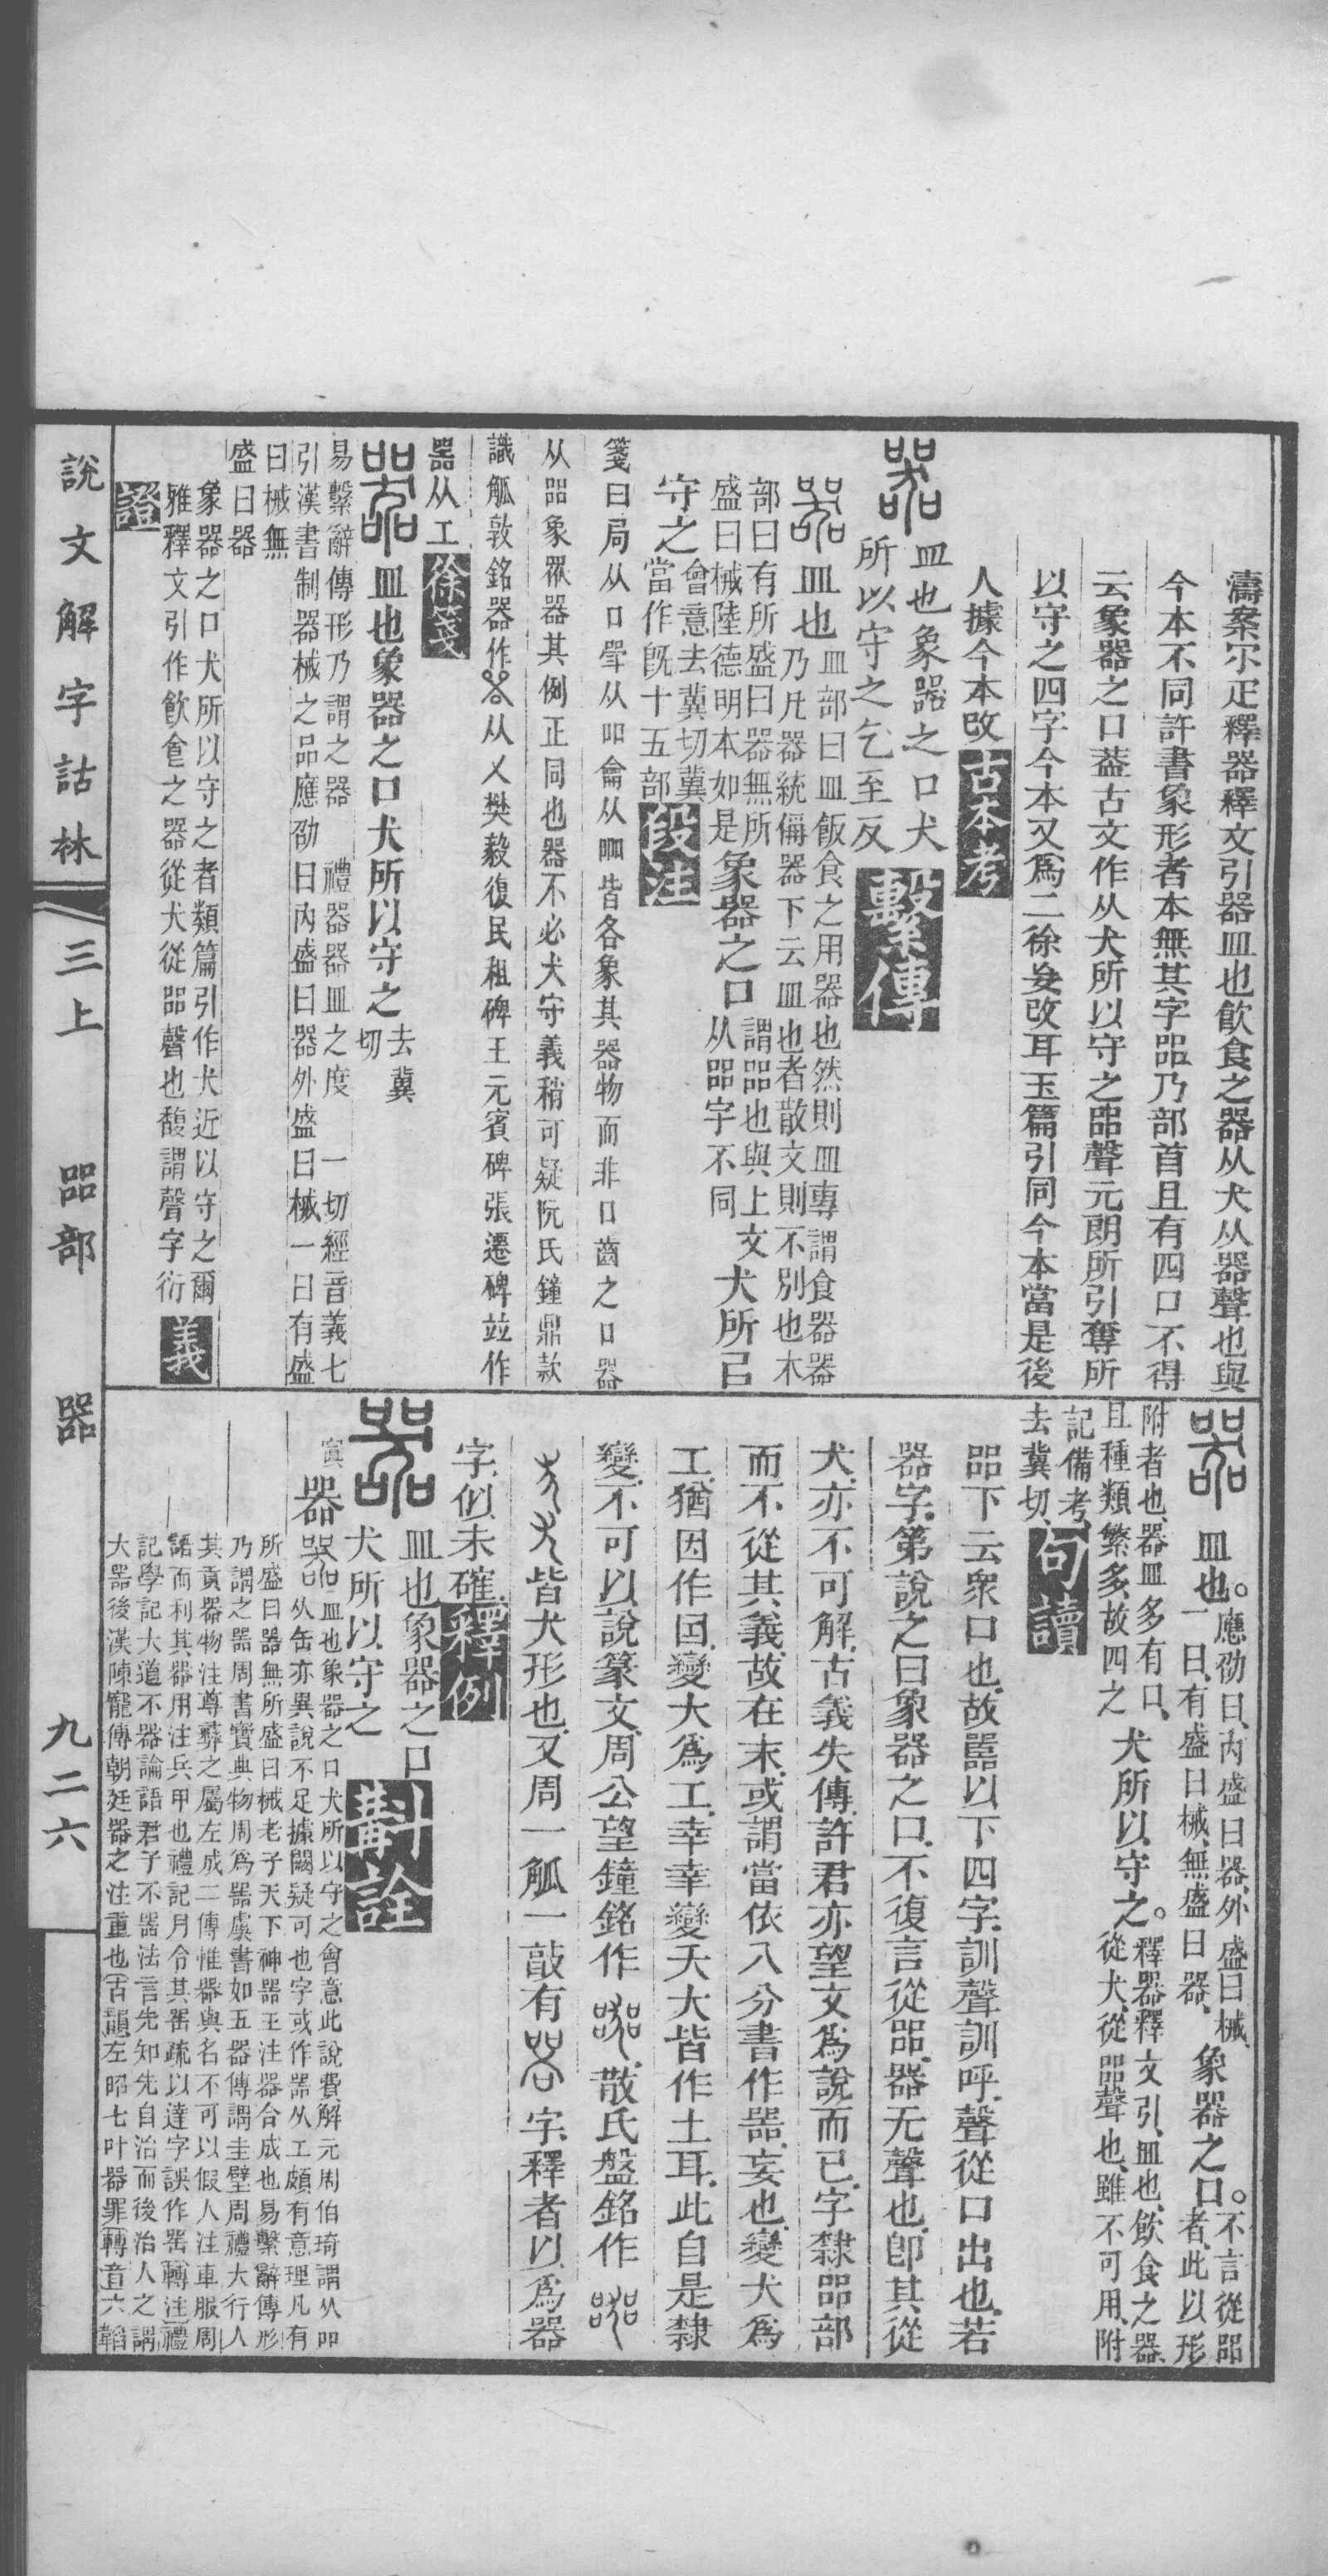 濤案尒疋釋器釋文引器皿也飲食之器从犬从器聲也與
今本不同許書象形者本無其字㗊乃部首且有四口不得
云象器之口葢古文作从犬所以守之㗊聲元朗所引奪所
以守之四字今本又爲二徐妄改耳玉篇引同今本當是後
人據今本改 古本考
皿也象器之口犬
所以守之乞至反 繫傳
皿也
皿部曰皿飯食之用器也然則皿專謂食器器
乃凡器統偁器下云皿也者散文則不別也木
部曰有所盛曰器無所
盛曰械陸德明本如是
象器之口
謂㗊也與上文
从㗊字不同
犬所㠯
守之
會意去冀切冀
當作旣十五部
段注
箋曰局从口㘝从吅龠从㗊皆各象其器物而非口齒之口器
从㗊象眾器其例正同也器不必犬守義稍可疑阮氏鐘鼎款
識觚敦銘器作 从乂樊毅復民租碑王元賓碑張遷碑竝作
噐从工 徐箋
皿也象器之口犬所以守之
去冀
切
易繫辭傳形乃謂之器 禮器器皿之度 一切經音義七
引漢書制器械之品應劭曰內盛曰器外盛曰械一曰有盛
曰械無
盛曰器
象器之口犬所以守之者類篇引作犬近以守之爾
雅釋文引作飮食之器從犬從㗊聲也馥謂聲字衍 義
證
皿也。
應劭曰、內盛曰器、外盛曰械、
一曰、有盛曰械、無盛曰器、
象器之口。
不言從㗊
者、此以形
附者也、器皿多有口、
且種類繁多、故四之
犬所以守之。
釋器釋文引、皿也、飲食之器、
從犬、從㗊聲也、雖不可用、附
記備考、
去冀切、
句讀
㗊下云眾口也、故嚚以下四字、訓聲訓呼、聲從口出也、若
器字、第說之曰象器之口、不復言從㗊、器无聲也、卽其從
犬、亦不可解、古義失傳、許君亦望文爲說而已、字隸㗊部
而不從其義、故在末、或謂當依八分書作噐、妄也、變犬爲
工、猶因作囙、變大爲工、幸幸變夭大皆作土耳、此自是隸
變、不可以說篆文、周公望鐘銘作 、散氏盤銘作
皆犬形也、又周一觚一敲有 字、釋者以爲器
字、似未確、 釋例
皿也象器之口
犬所以守之
斠詮
寅
器
皿也象器之口犬所以守之會意此說費解元周伯琦謂从吅
从缶亦異說不足據闕疑可也字或作噐从工頗有意理凡有
所盛曰器無所盛曰械老子天下神器王注器合成也易繫辭傳形
乃謂之器周書寶典物周爲器虞書如五器傳謂圭璧周禮大行人
其貢器物注尊彝之屬左成二傳惟器與名不可以假人注車服周
語而利其器用注兵甲也禮記月令其器疏以達字誤作噐轉注禮
記學記大道不器論語君子不器法言先知先自治而後治人之謂
大器後漢陳寵傳朝廷器之注重也古韻左昭七叶器罪轉音六韜
說文解字詁林 三上 㗊部 器 九二六